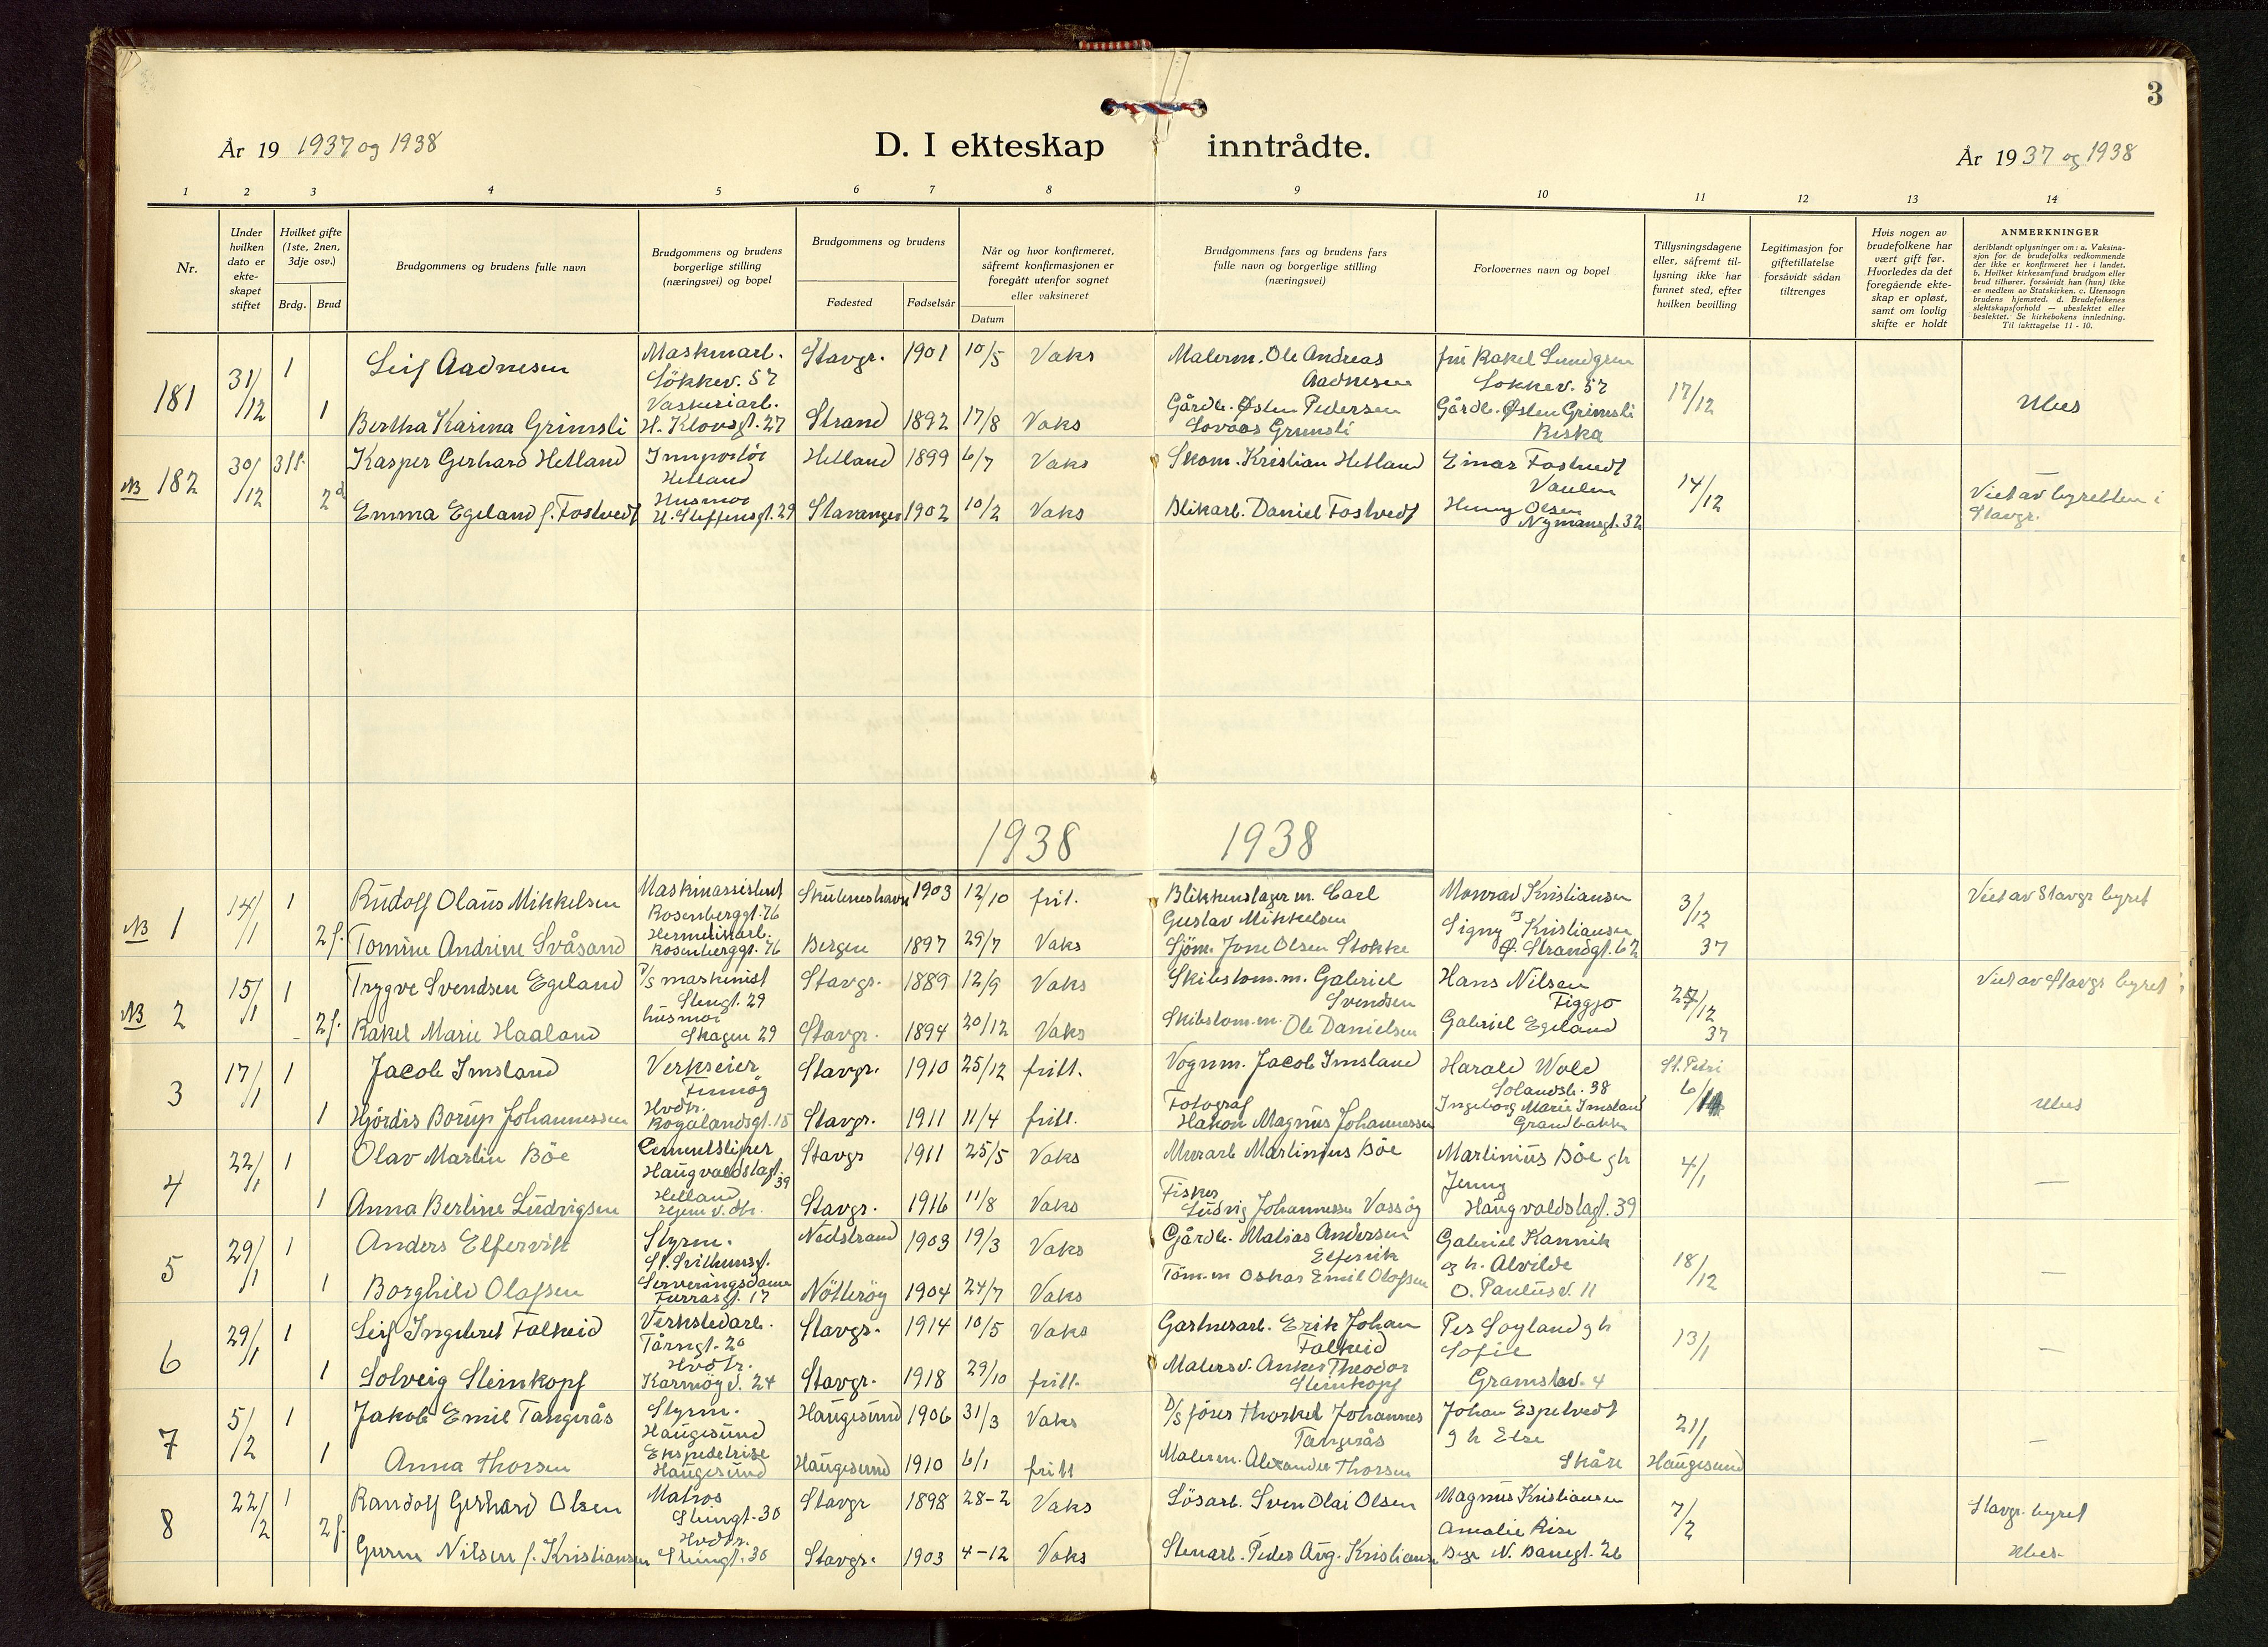 3
År 19 1937 og 1938
D. I ekteskap inntrådte.
År 19 37 og 1938
1 2 3 4 5 6 7 8 9 10 11 12 13 14
Nr.
Under hvilken dato er ekte-skapet stiftet
Hvilket gifte (1ste, 2nen, 3dje osv.)
Brdg. Brud
Brudgommens og brudens fulle navn
Brudgommens og brudens borgerlige stilling (næringsvei) og bopel
Brudgommens og brudens
Fødested Fødselsår
Når og hvor konfirmeret, såfremt konfirmasjonen er foregått utenfor sognet eller vaksineret
Datum
Brudgommens fars og brudens fars fulle navn og borgerlige stilling (næringsvei)
Forlovernes navn og bopel
Tillysningsdagene eller, såfremt til-lysning ikke har funnet sted, efter hvilken bevilling
Legitimasjon for giftetillatelse forsåvidt sådan tiltrenges
Hvis nogen av brudefolkene har vært gift før. Hvorledes da det foregående ekte-skap er opløst, samt om lovlig skifte er holdt
ANMERKNINGER
deriblandt oplysninger om: a. Vaksina-sjon for de brudefolks vedkommende der ikke er konfirmeret her i landet. b. Hvilket kirkesamfund brudgom eller brud tilhører, forsåvidt han (hun) ikke er medlem av Statskirken. c. Utensogn brudens hjemsted. d. Brudefolkenes slektskapsforhold — ubeslektet eller beslektet. Se kirkebokens innledning. Til iakttagelse 11 - 10.
181 31/12 1 Leif Aadnesen Maskinarb. Lökkev. 57 Stavgr. 1901 10/5 Vaks Malerm. Ole Andreas Aadnesen fru Rakel Lundgren Lökkev. 57 17/12 Ubes
1 Bertha Karina Grimsli Vaskeriarb. H. Klovsgt. 27 Strand 1892 17/8 Vaks Gårdbr. Østen Pedersen Lovaas Grimsli Gårdb. Østen Grimsli Riska
NB 182 30/12 3 Kasper Gerhard Hetland Hetland Hetland 1899 6/7 Vaks Skom. Kristian Hetland Einar Fostvedt Vaulen 14/12 Viet av byretten i Stavgr.
2 Emma Egeland f. Fostvedt Husmor St. Steffensgt. 29 Stavanger 1902 10/2 Vaks Blikarb. Daniel Fostvedt Henny Olsen Nymansgt. 32
1938 1938
NB 1 14/1 1 Rudolf Olaus Mikkelsen Maskinassistent Rosenberggt. 76 Skudeneshavn 1903 12/10 frit. Blikkenslager m. Carl Gustav Mikkelsen Monrad Kristiansen 3/12 37 Viet av Stavgr byret
2 f. Tomine Andrine Svåsand Hermetikarb. Rosenberggt. 76 Bergen 1897 29/7 Vaks Sjöm. Jone Olsen Stokke Signy Kristiansen Ø. Strandgt. 62
NB 2 15/1 1 Trygve Svendsen Egeland D/S maskinist Stengt. 29 Stavgr. 1889 12/9 Vaks Skibstom.m. Gabriel Svendsen Hans Nilsen Figgjo 27/12 37 Viet av Stavgr byret
2 f. Rakel Marie Haaland husmor Skagen 29 Stavgr. 1894 20/12 Vaks Skibstom.m. Ole Danielsen Gabriel Egeland
3 17/1 1 Jacob Imsland Verkseier Finnöy Stavgr. 1910 25/12 fritt. Vognm. Jacob Imsland Harald Wold Solandsb. 38 St. Petri 6/ Ubes
1 Hjördis Borup Johannessen Hvdtr. Rogalandsgt. 15 Stavgr. 1911 11/4 fritt. Fotograf Hakon Magnus Johannessen Ingeborg Marie Imsland Grandbakken
4 22/1 1 Olav Martin Böe Cementsliper Haugvaldstadgt. 39 Stavgr 1911 25/5 Vaks Murarb Martinius Böe Martinius Böe gh Jenny Haugvaldstagt. 39 4/1 —
1 Anna Berline Ludvigsen Hetland Hjem v. Mr. Stavgr. 1916 11/8 Vaks Fisker Ludvig Johannessen Vassöy
5 29/1 1 Anders Elfervik Styrm. St. Svithunsgt. Nedstrand 1903 19/3 Vaks Gårdb. Matias Andersen Elfervik Gabriel Kannik og h. Alvilde Ö. Paulusv. 11 18/12 —
1 Borghild Olafsen Serveringsdame Furrasgt. 17 Nötteröy 1904 24/7 Vaks Töm.m Oskar Emil Olafsen
6 29/1 1 Leif Ingebret Falkeid Verkstedarb. Tårngt. 20 Stavgr. 1914 10/5 Vaks Gartnerarb. Erik Johan Falkeid Per Soyland gh Sofie Gramstav. 4 13/1 —
1 Solveig Steinkopf Hvdtr. Karmöyg. 24 Stavgr. 1918 29/10 fritt. Malersv. Anker Theodor Steinkopf
7 5/2 1 Jakob Emil Tangerås Styrm. Haugesund Haugesund 1906 31/3 Vaks D/S förer Thorkel Johannes Tangerås Johan Espetvedt gh Else Skåre 21/1 Haugesund —
1 Anna Thorsen Ekspeditrise Haugesund Haugesund 1910 6/1 fritt Malerm. Alexander Thorsen
8 22/2 1 Randolf Gerhard Olsen Matros Stengt. 30 Stavgr 1898 28-2 Vaks Lösarb. Sven Olai Olsen Magnus Kristiansen 7/2 Stavgr. byret Ubes.
2 f. Gurine Nilsen f. Kristiansen Hvdtr. Stengt. 30 Stavgr. 1903 4-12 Vaks Stenarb. Peder Aug. Kristiansen Amalie Rise N. Banegt. 26